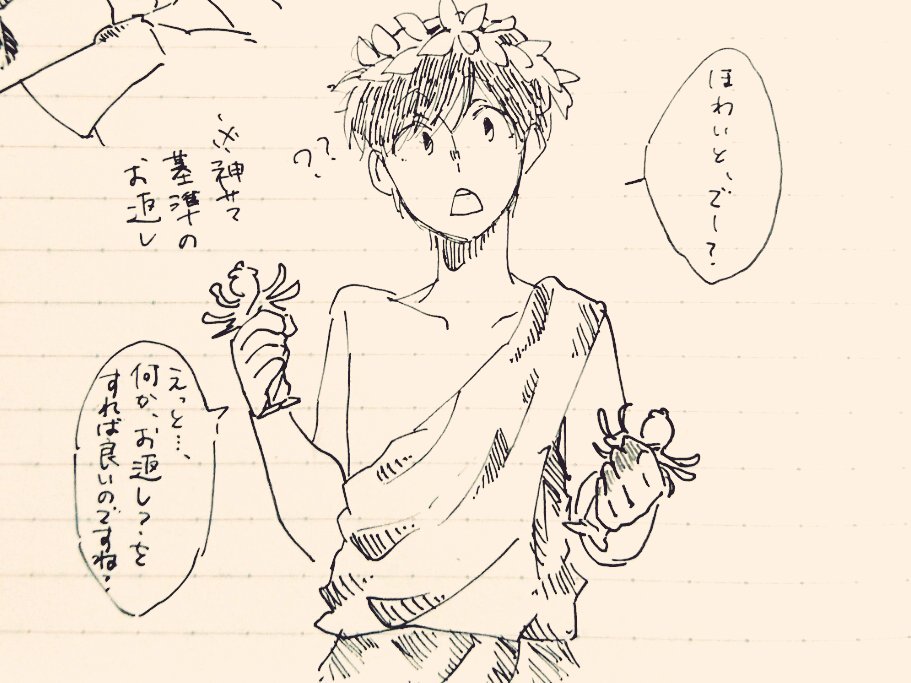 ほわいと、でー？
??
※神サマ
基準の
お返し
えっと…、
何か、お返し？を
すれば良いのですね？